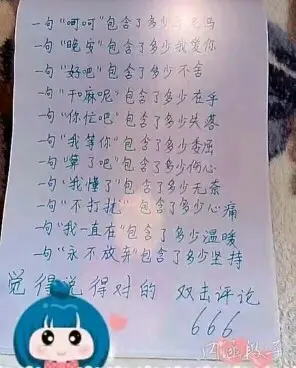 一句"呵呵"包含了多少草泥马
一句"晚安"包含了多少我爱你
一句"好吧"包含了多少不舍
一句"干麻呢"包含了多少在乎
一句"你忙吧"包含了多少失落
一句"我等你"包含了多少委屈
一句"算了吧"包含了多少伤心
一句"我懂了"包含了多少无奈
一句"不打扰"包含了多少心痛
一句"我一直在"包含了多少温暖
一句"永不放弃"包含了多少坚持
觉得说得对的 双击评论
666
内涵段子